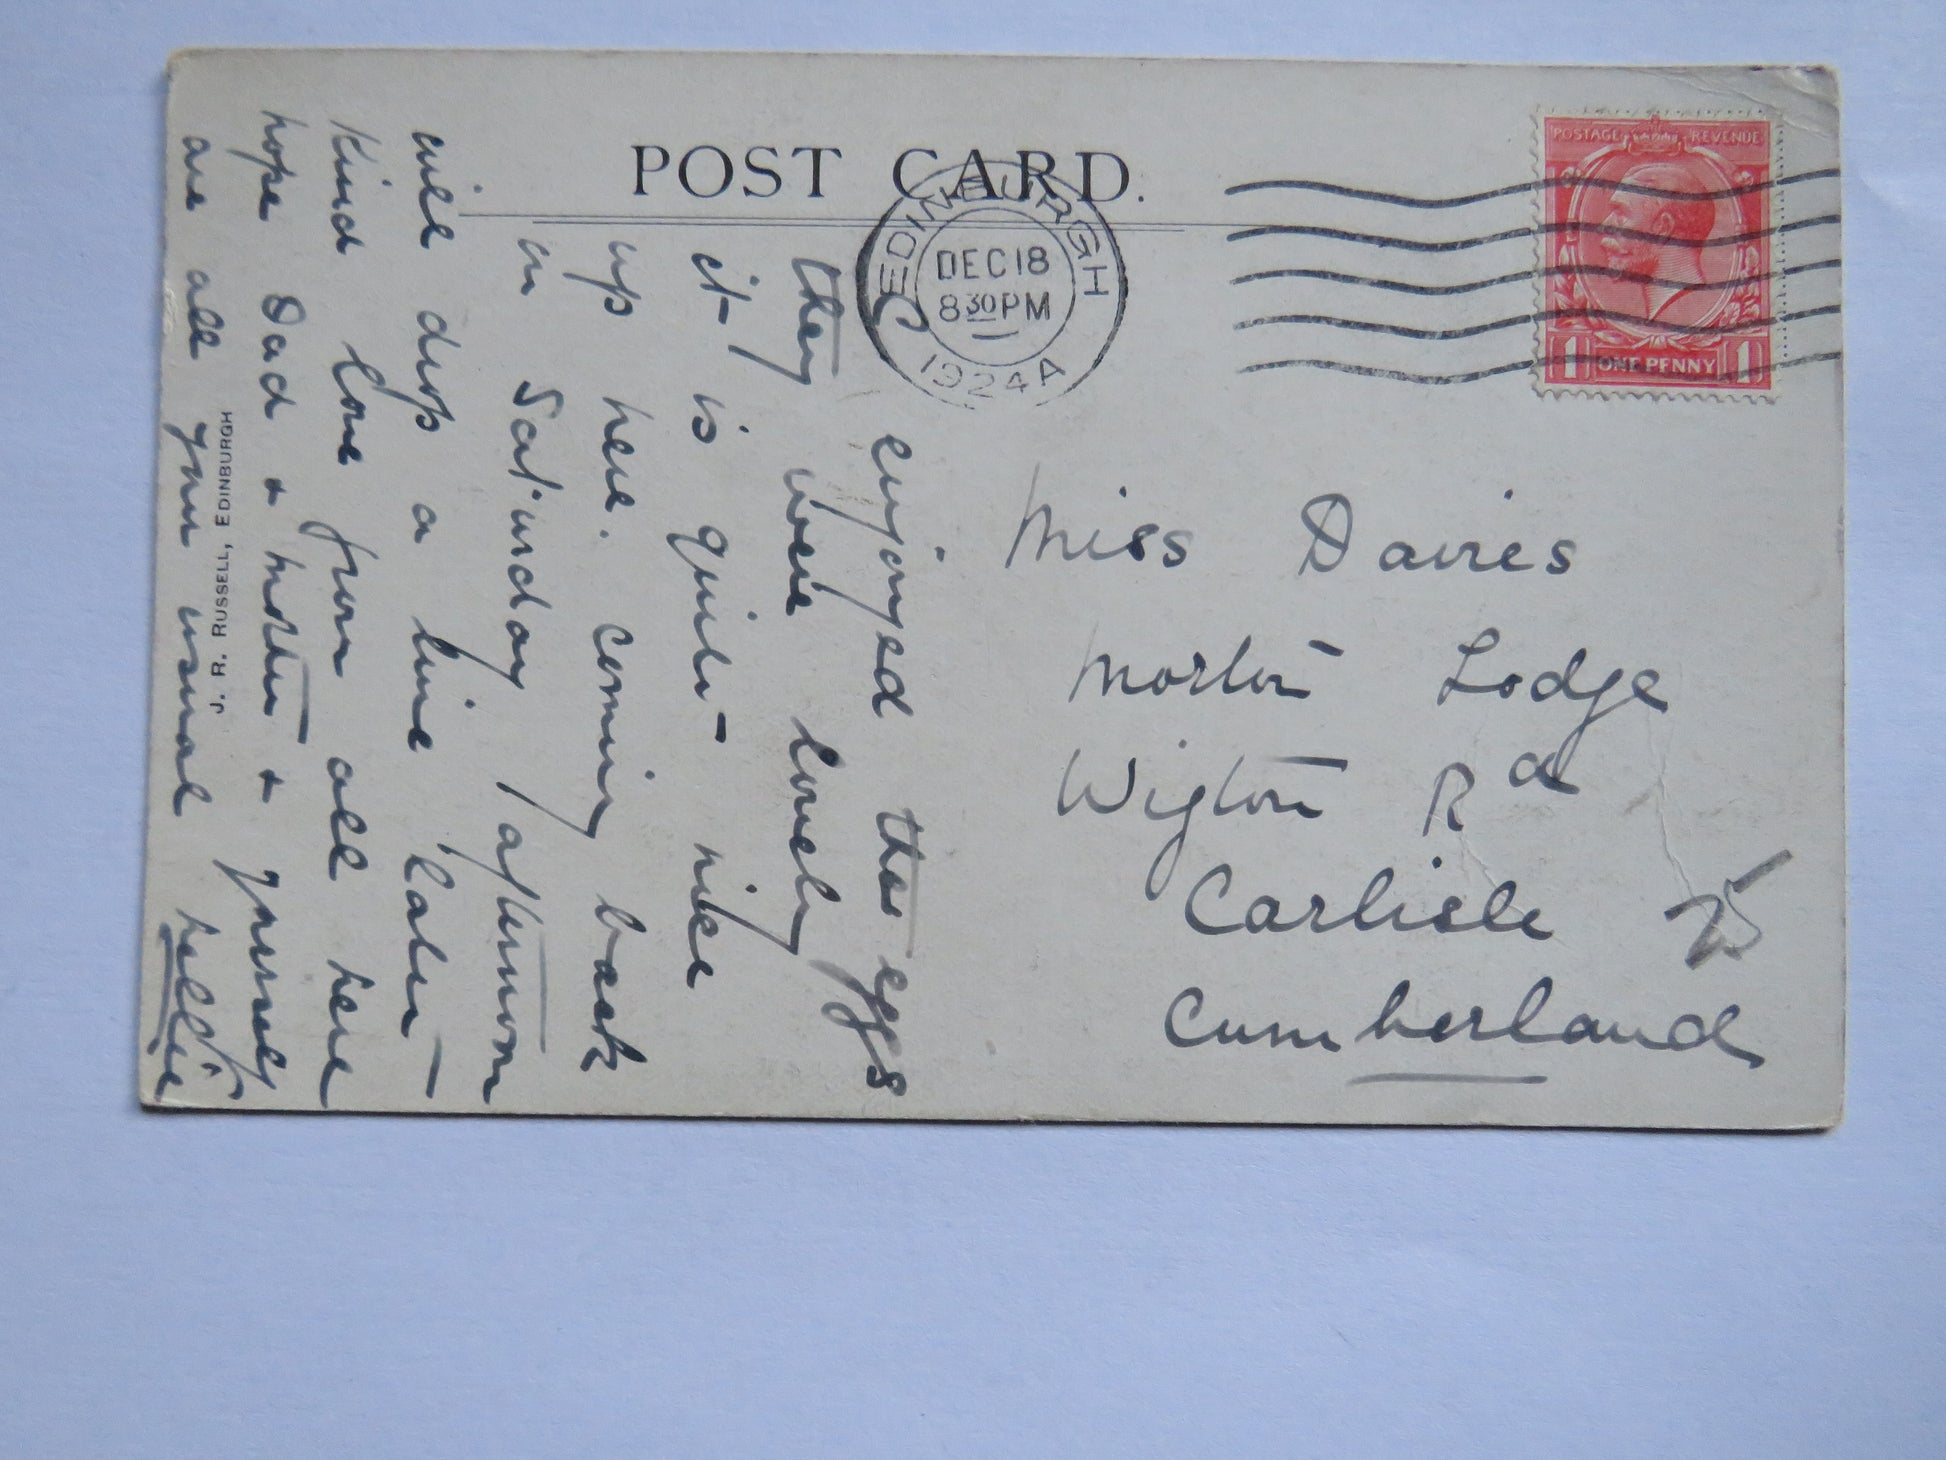 POST CARD.
EDINBURGH
DEC 18
8 30 PM
1924 A
POSTAGE REVENUE
1 ONE PENNY 1
Miss Davies
Morton Lodge
Wigton Rd
Carlisle
Cumberland
enjoyed the eggs
they were lovely
it is quite nice
up here. coming back
on Saturday afternoon
will drop a line later
Kind love from all here
hope Dad & Mother & yourself
are all your usual
J. R. RUSSELL, EDINBURGH